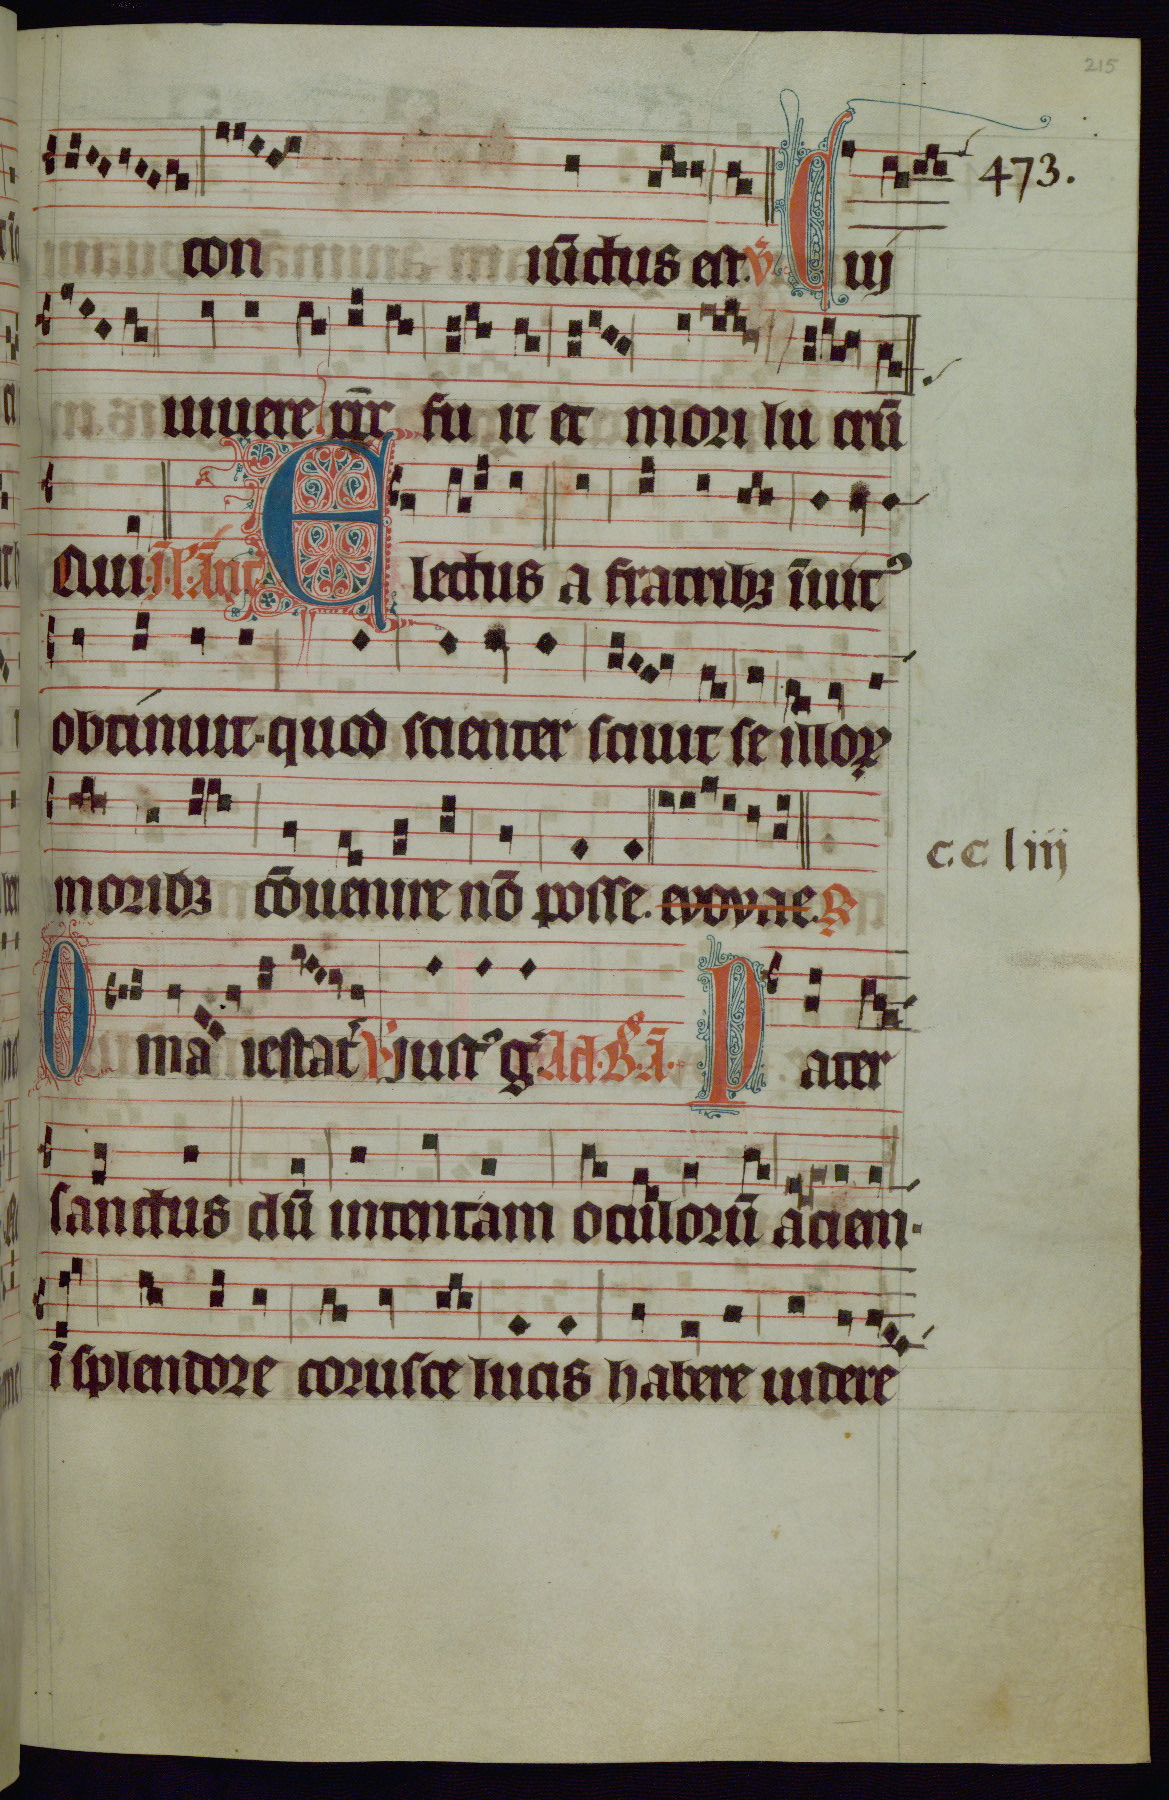 215
473.
con iu̅ctus est. V̅. Cui
uiuere xp̅c fu it et mori lu cru̅
Qui. I̅. L. A̅nt. E lectus a fratribꝫ i̅uitꝰ
obtinuit. quod scienter sciuit se illoꝝ
cc liij
moribꝫ co̅uenire no̅ posse. euouae. ℟
O ma iestat᷑ V. Justꝰ g̅. Ad. B̅. A̅. P ater
sanctus du̅ intentam oculoru̅ aciem.
i̅ splendore corusce lucis habere uidere